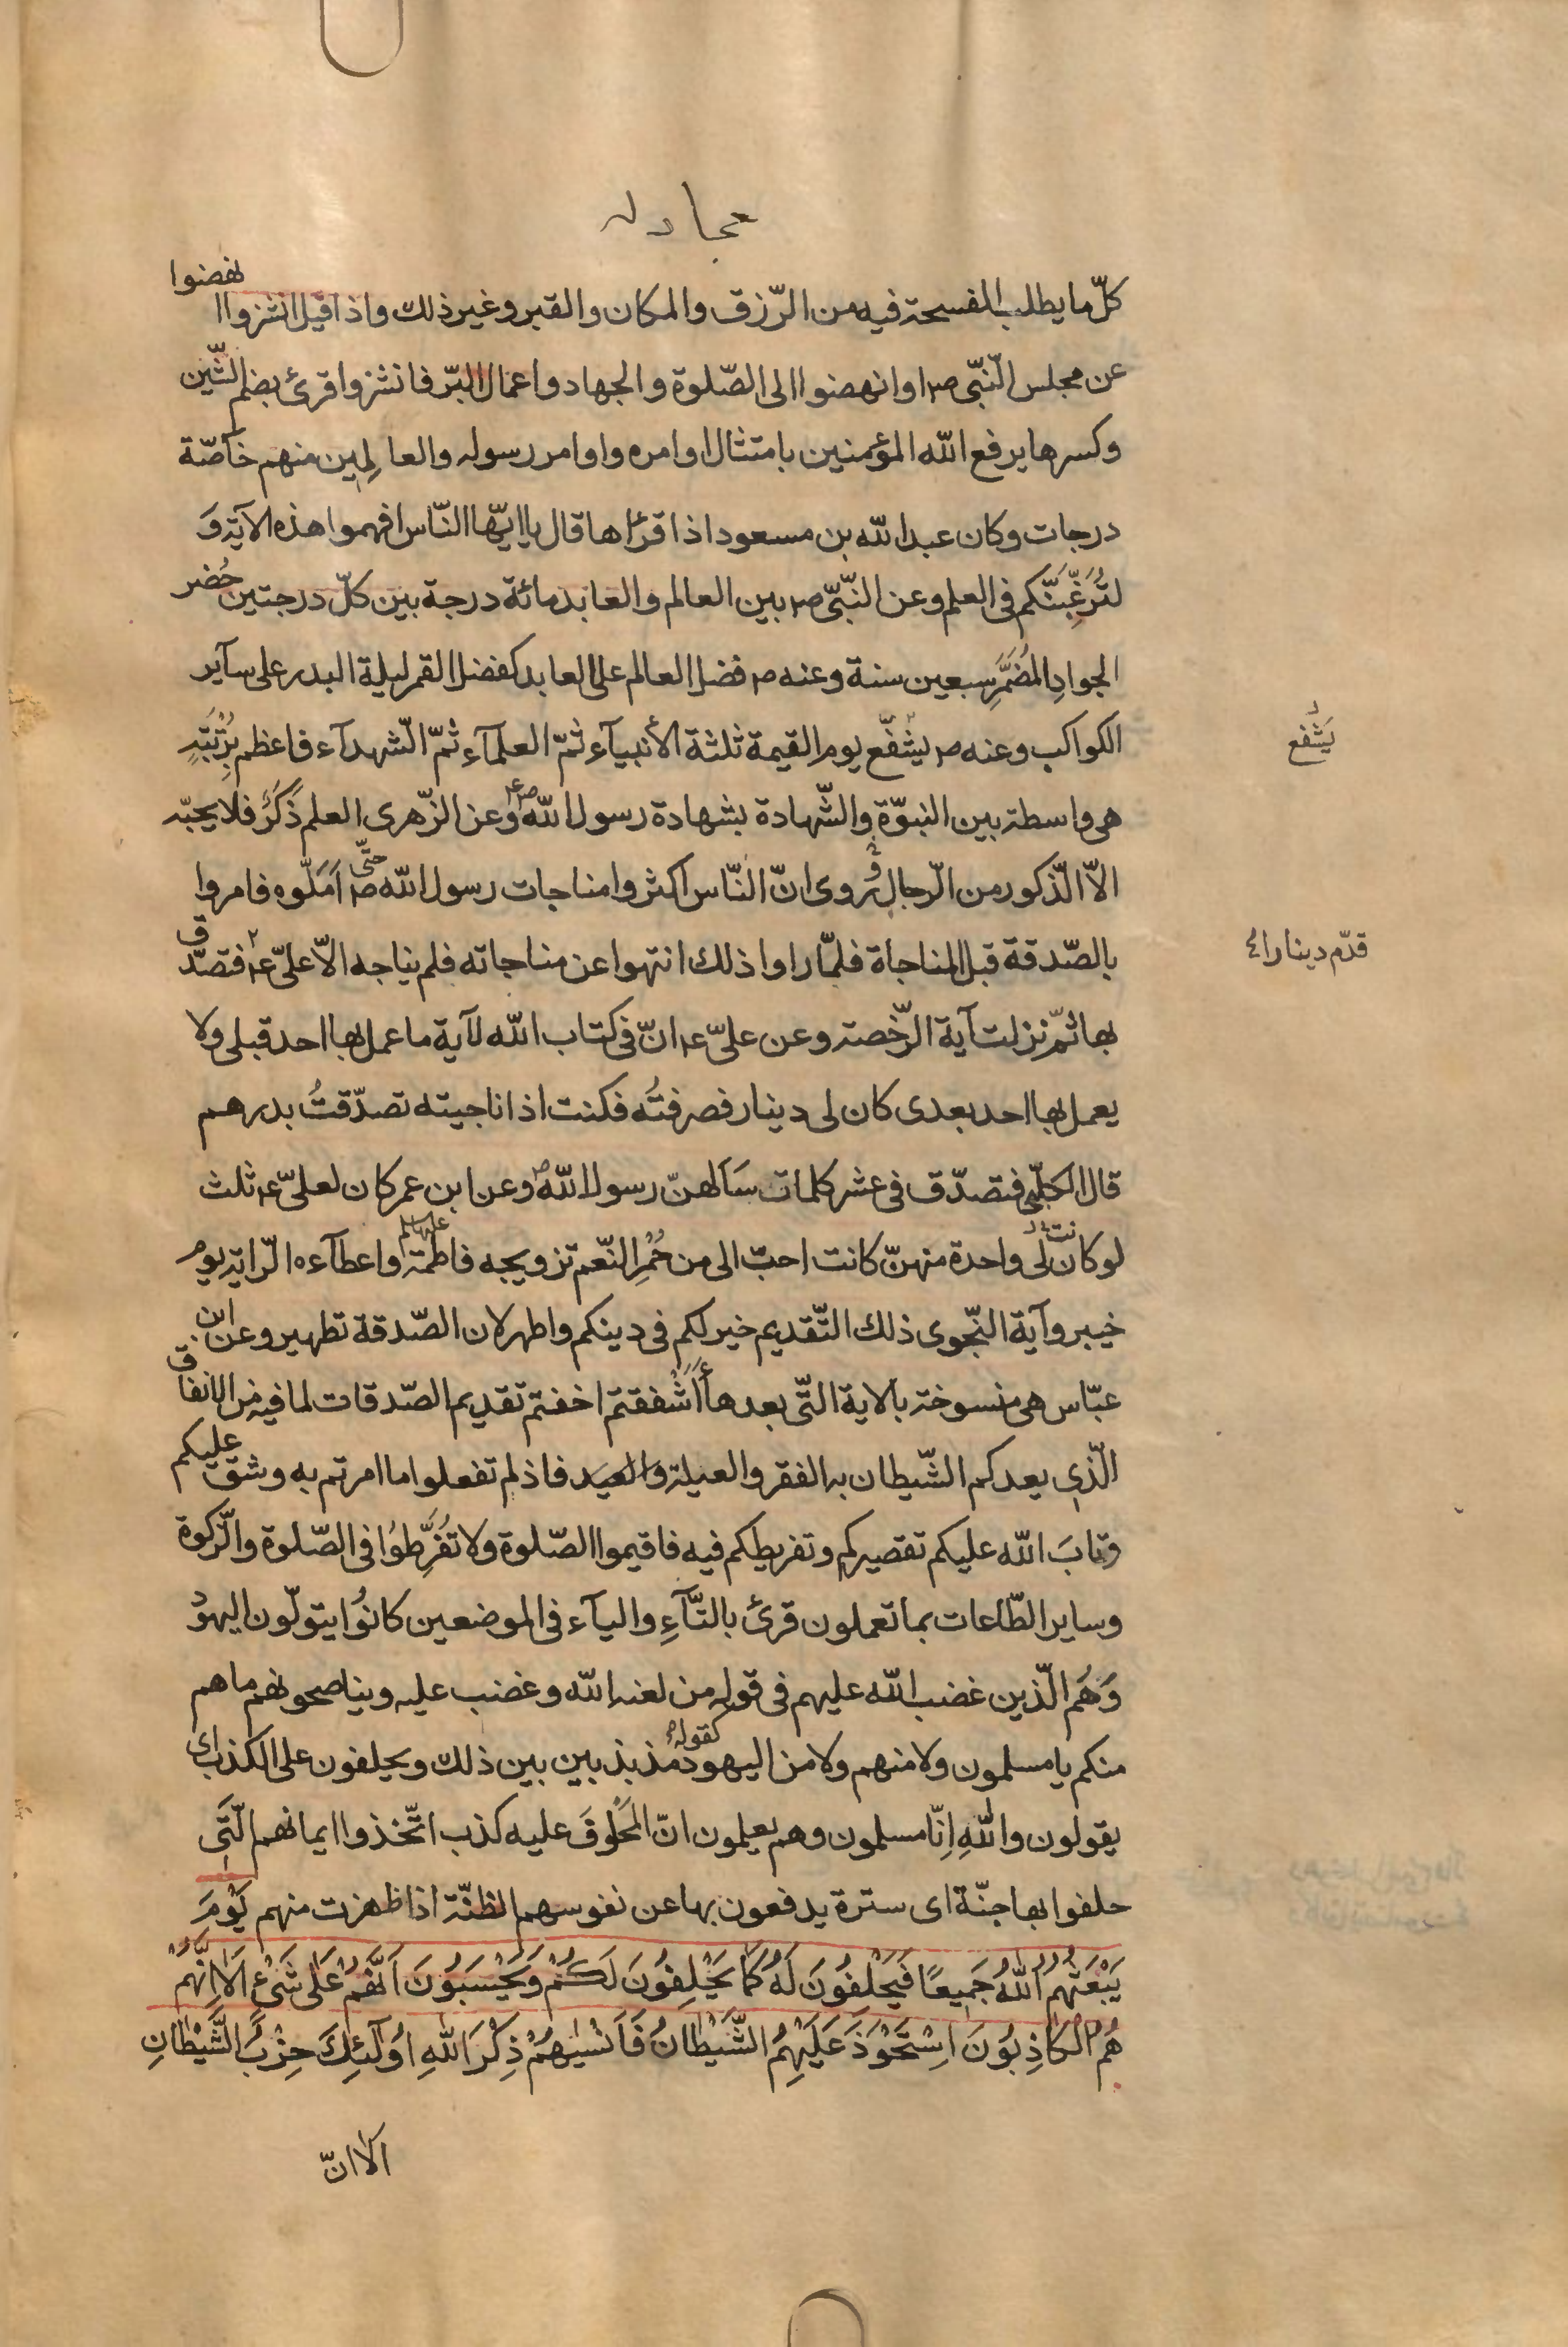 مجادله
كلّ ما يطلب المفسحة فيه من الرّزق والمكان والقبر وغير ذلك واذا قيل انشزوا انهضوا
عن مجلس النّبّى ص او انهضوا الى الصّلوة والجهاد واعمال البرّ فانشزوا قرئ بضم الشّين
وكسرها يرفع الله المؤمنين بامتثال اوامره واوامر رسوله والعالِمين منهم خآصّة
درجات وكان عبد الله بن مسعود اذا قرأها قال يا ايّها النّاس افهموا هذه الآية وَ
لتُرَغِّبَنّكم فى العلم وعن النّبّى ص بين العالم والعابد مائة درجة بين كلّ درجتين حُضر
الجوادِ المُضَمَّرِ سبعين سنة وعنه ص فضل العالم على العابد كفضل القمر ليلة البدر على سآير
الكواكب وعنه ص يشفّع يوم القيمة ثلثة الأنبيآء ثمّ العلمآء ثمّ الشّهدآء فاعظم بِرُتْبَةٍ
يَشفع
هى واسطة بين النبوّة والشّهادة بشهادة رسول الله ص وعن الزّهرى العلم ذَكَرٌ فلا يحبّه
الاّ الذّكور من الرّجال وُروى انّ النّاس اكثروا مناجات رسول الله ص حتّى اَمَلّوه فامروا
بالصّدقة قبل المناجاة فلمّا راوا ذلك انتهوا عن مناجاته فلم يناجه الاّ علىّ ع فتصدّق
قدّم دينارا
بها ثمّ نزلت آية الرّخصة وعن علىّ ع انّ فى كتاب الله لآية ما عمل بها احد قبلى ولا
يعمل بها احد بعدى كان لى دينار فصرفتُه فكنت اذا ناجيته تصدّقتُ بدرهم
قال الكلبّى فتصدّق فى عشر كلمات سَاَلهنّ رسول الله ص وعن ابن عمر كان لعلىّ ع ثلث
لو كانت لى واحدة منهنّ كانت احبّ الى من حُمْرِ النّعم تزويجه فاطمة عليها سلم واعطآءه الرّاية يوم
خيبر وآية النّجوى ذلك التّقديم خير لكم فى دينكم واطهر لان الصّدقة تطهير وعن ابن
عبّاس هى منسوخة بالاية التّى بعدها أاَشْفقتم اخفتم تقديم الصّدقات لما فيه من الانفاق
الّذى يعدكم الشّيطان به الفقر والعيلة والعيد فاذ لم تفعلوا ما امرتم به وشق عليكم
وتابَ الله عليكم تقصيركم وتفريطكم فيه فاقيموا الصّلوة ولا تُفَرِّطوُا فى الصّلوة والزّكوة
وساير الطّاعات بما تعملون قرئ بالتّآءِ واليآء فى الموضعين كانوُا يتولّون اليهود
وَهُم الّذين غضب الله عليهم فى قوله من لعنه الله وغضب عليه ويناصحونهم ما هم
منكم يا مسلمون ولا منهم ولا من اليهود كقوله مذبذبين بين ذلك ويحلفون على الكذب اى
يقولون واللهِ اِنّا مسلمون وهم يعلمون انّ المَحْلُوفَ عليه كذب اتّخذوا ايمانهم الّتى
حلفوا بها جنّة اى سترة يدفعون بها عن نفوسهم الظنّة اذا ظهرت منهم يَوْمَ
يَبْعَثُهُمُ اللهُ جَمِيعًا فَيَحْلِفُونَ لَهُ كَمَا يَحْلِفُونَ لَكُمْ وَيَحْسَبُونَ اَنَّهُمْ عَلٰى شَىْءٍ اَلَا اِنَّهُمْ
هُمُ الْكَاذِبُونَ اِسْتَحْوَذَ عَلَيْهِمُ الشَّيْطَانُ فَاَنْسٰيهُمْ ذِكْرَ اللهِ اُولٰٓئِكَ حِزْبُ الشَّيْطَانِ
الا انّ